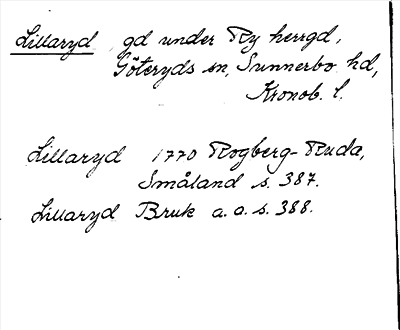 Lillaryd gd under Ry herrgd,
Göteryds sn, Sunnerbo hd,
Kronob. l.
Lillaryd 1770 Rogberg-Ruda,
Småland s. 387.
Lillaryd Bruk a.a. s. 388.